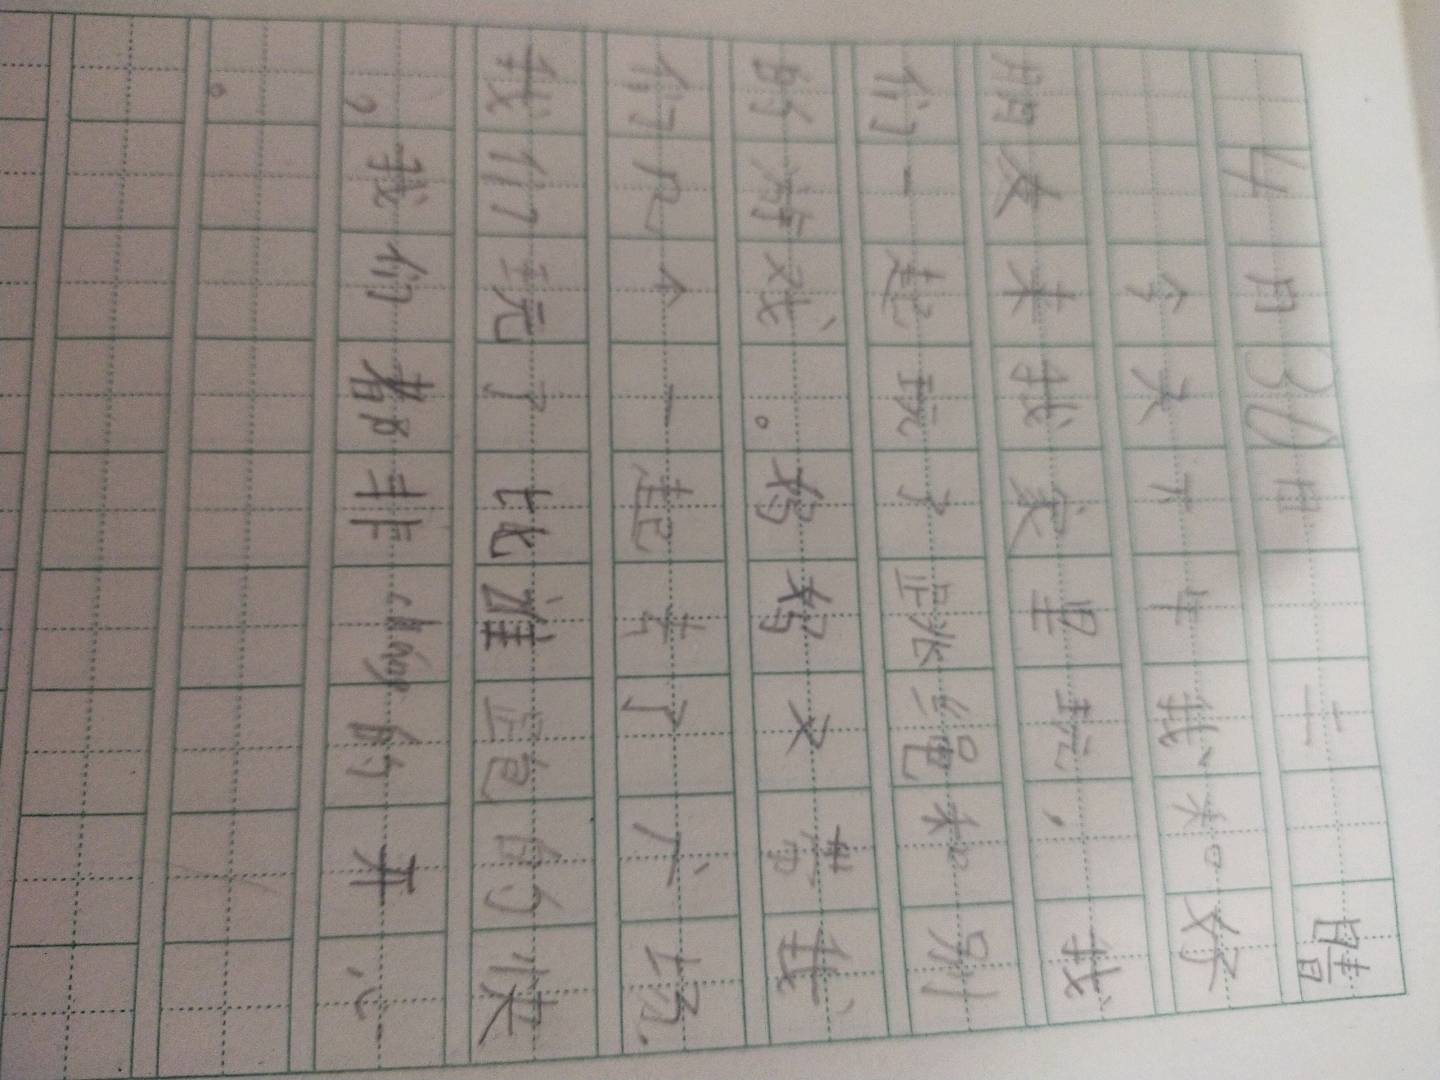 4月30日 二 晴
今天下午我和好
朋友来我家里玩,我
们一起玩了跳绳和别
的游戏。妈妈又带我
们几个一起去了广场.
我们玩了比谁跑的快
,我们都非常的开心
。